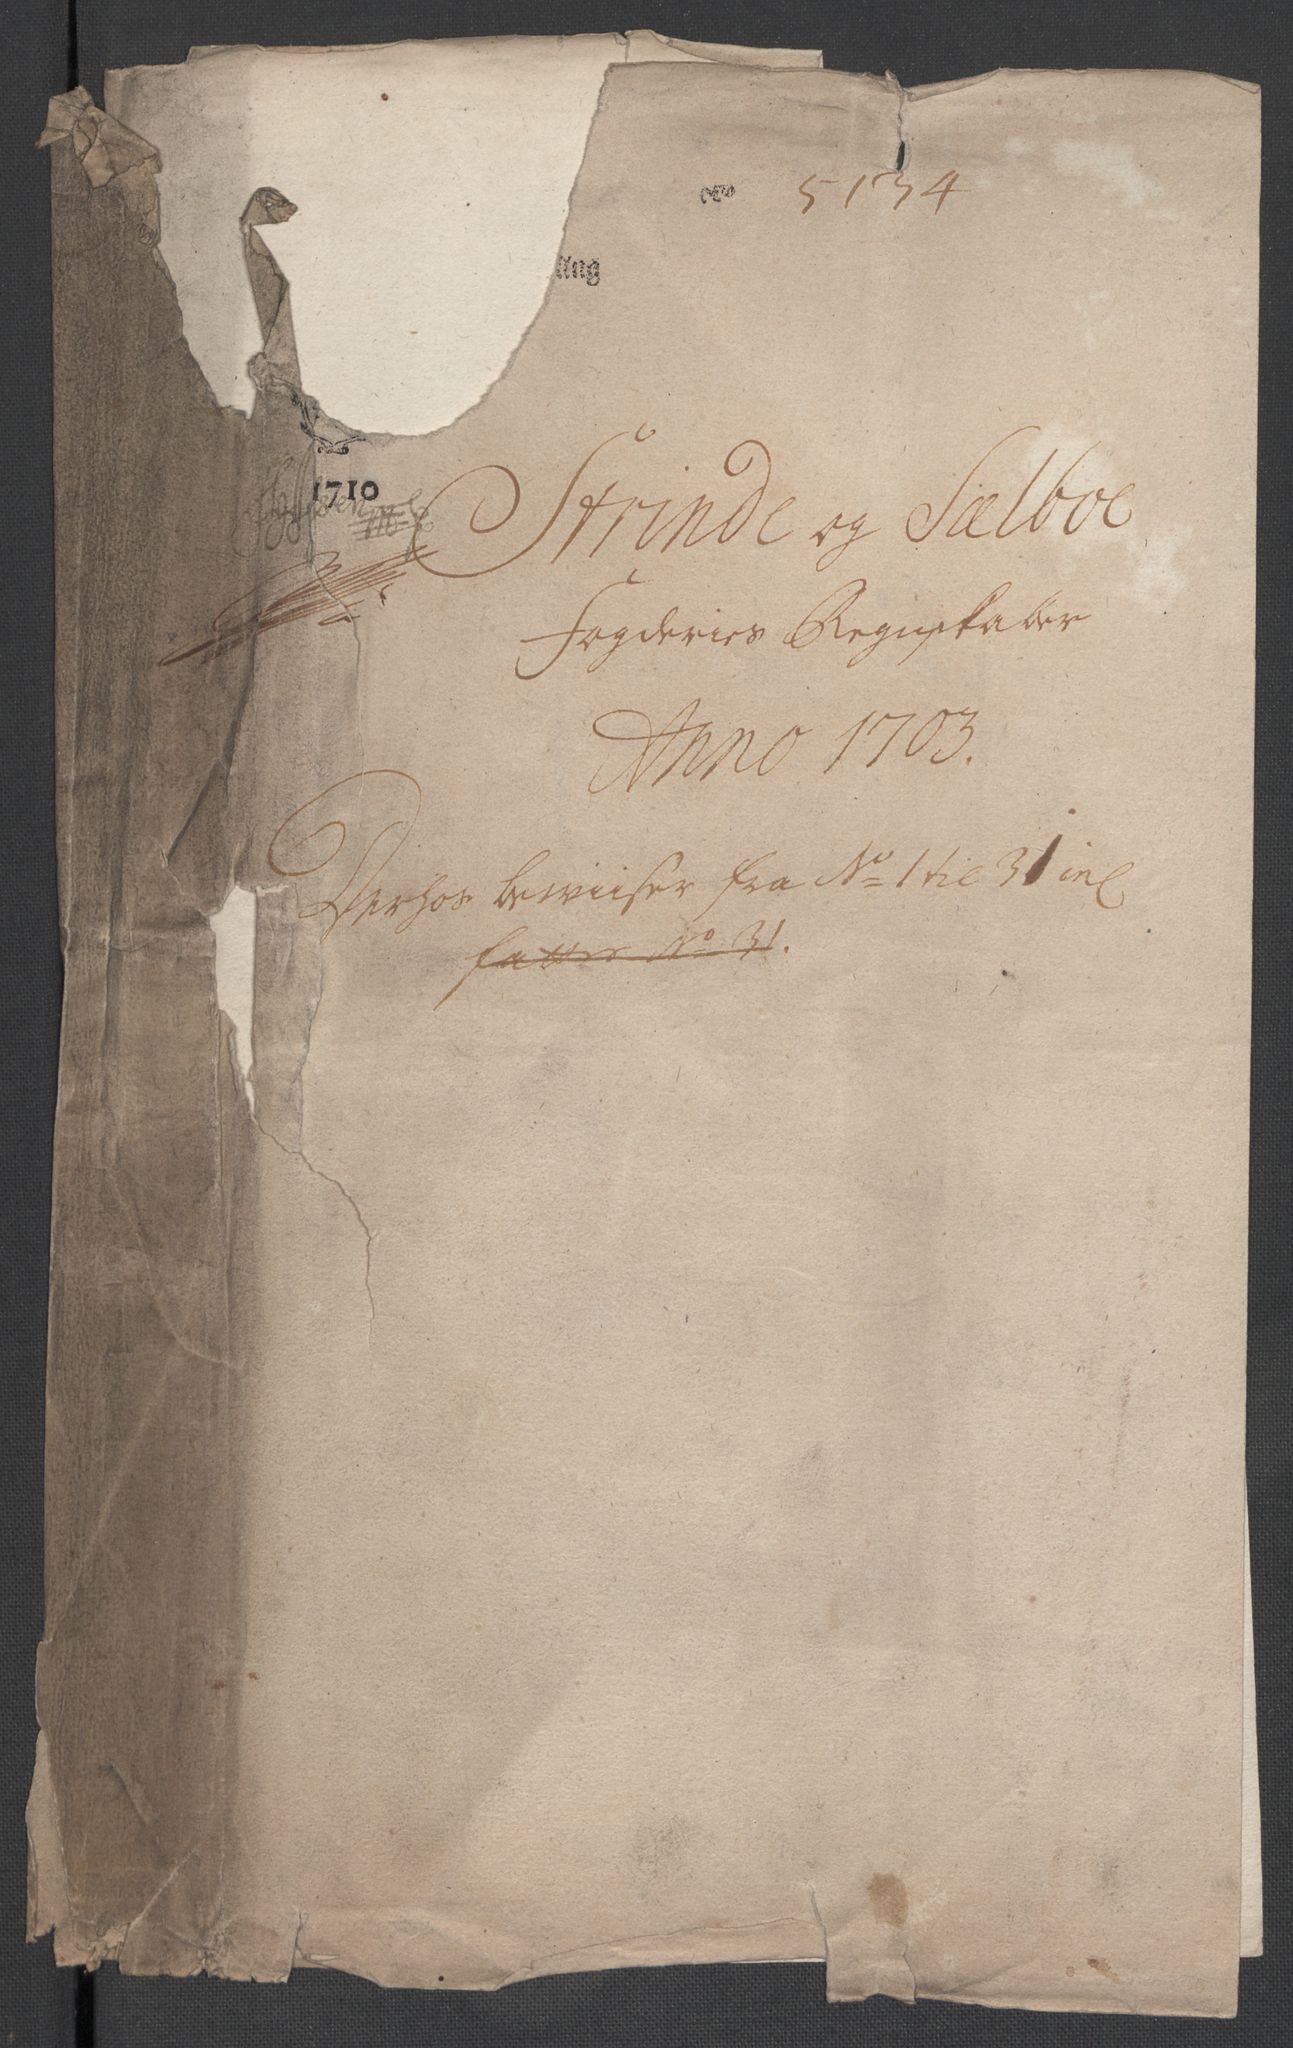 5134
ling
1710
Strinde og Sælboe
Fogderies Regnskaber
Anno 1703.
Derhos bewiiser fra No 1 til 31 incl
fattes No 31.